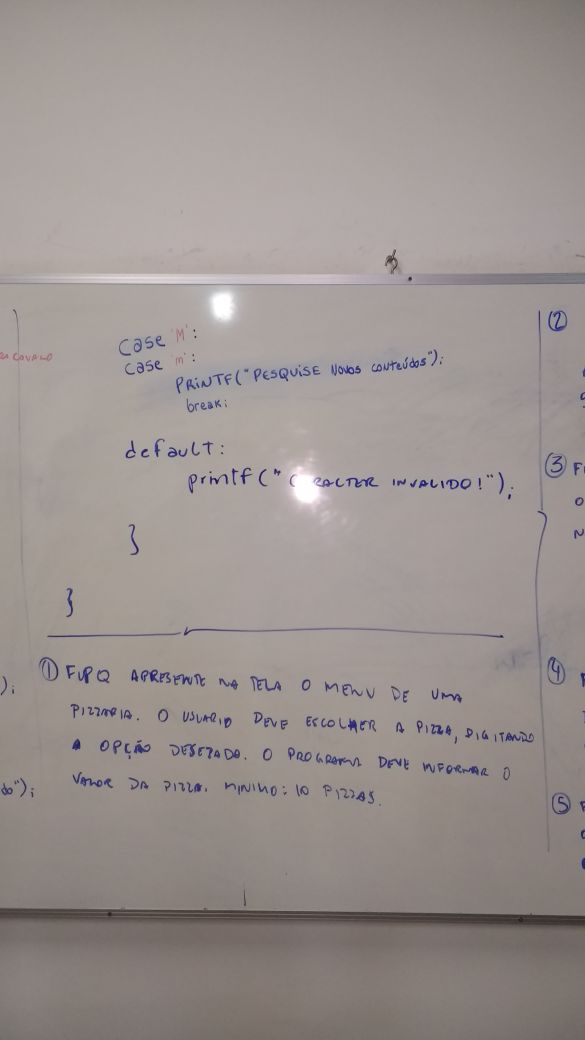 Case 'M':
Case 'm':
PRINTF("PESQUISE NOVOS CONTEÚDOS");
break;
default:
printf("CARACTER INVALIDO!");
}
}
① FUPQ APRESENTE NA TELA O MENU DE UMA
PIZZARIA. O USUARIO DEVE ESCOLHER A PIZZA, DIGITANDO
A OPÇÃO DESEJADO. O PROGRAMA DEVE INFORMAR O
VALOR DA PIZZA. MINIMO: 10 PIZZAS.
);
do");
②
③ F
O
N
④
⑤